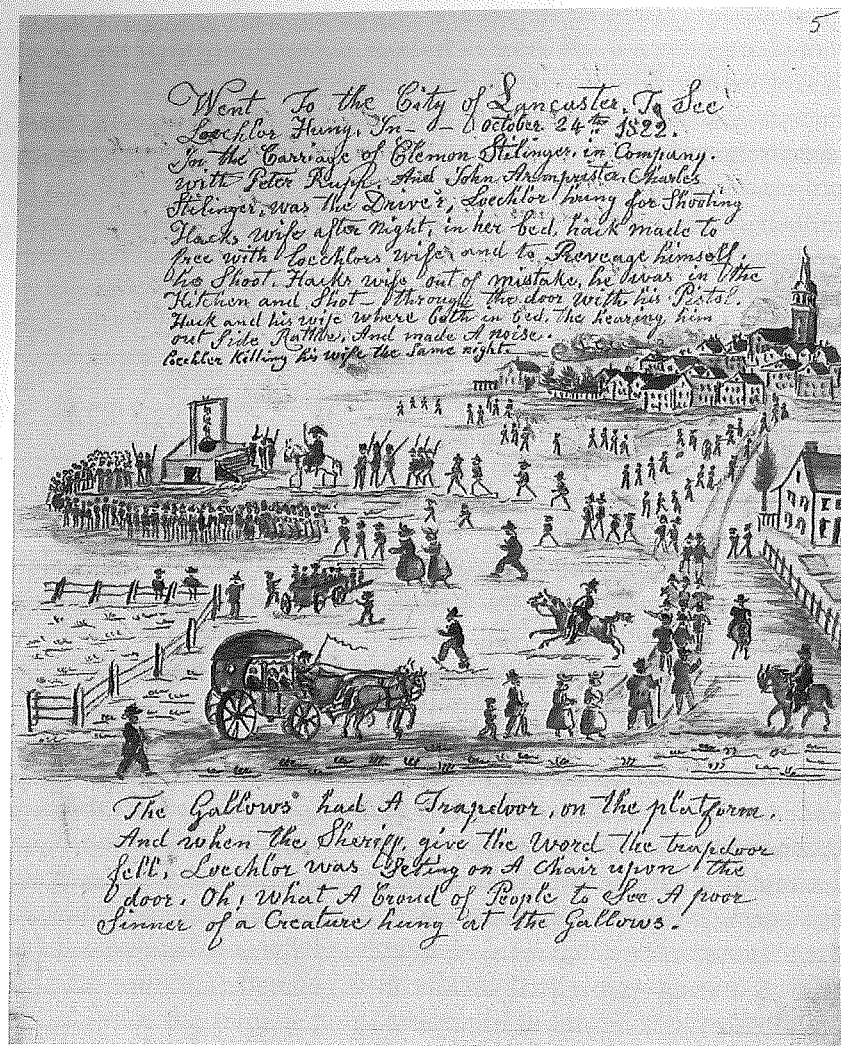 5
Went To the City of Lancaster, To See
Loechlor Hung, In - - October 24th 1822.
In the Carriage of Clemon Stilinger, in Company.
with Peter Rupp, And John Armprister, Charles
Stilinger, was the Driver, Loechlor hung for Shooting
Hacks wife after Night, in her bed, hack made to
free with Loechlors wife, and to Revenge himself.
he Shoot, Hacks wife out of mistake, he was in the
Kitchen and Shot - through the door with his Pistol.
Hack and his wife where both in bed, the hearing him
out Side Rattle, And made A noise.
Loechler Killing his wife the Same night.
The Gallows had A Trapdoor, on the platform,
And when the Sheriff, give the Word the trapdoor
fell, Loechlor was Seting on A Chair upon the
door, Oh, What A Croud of People to See A poor
Sinner of a Creature hung at the Gallows.